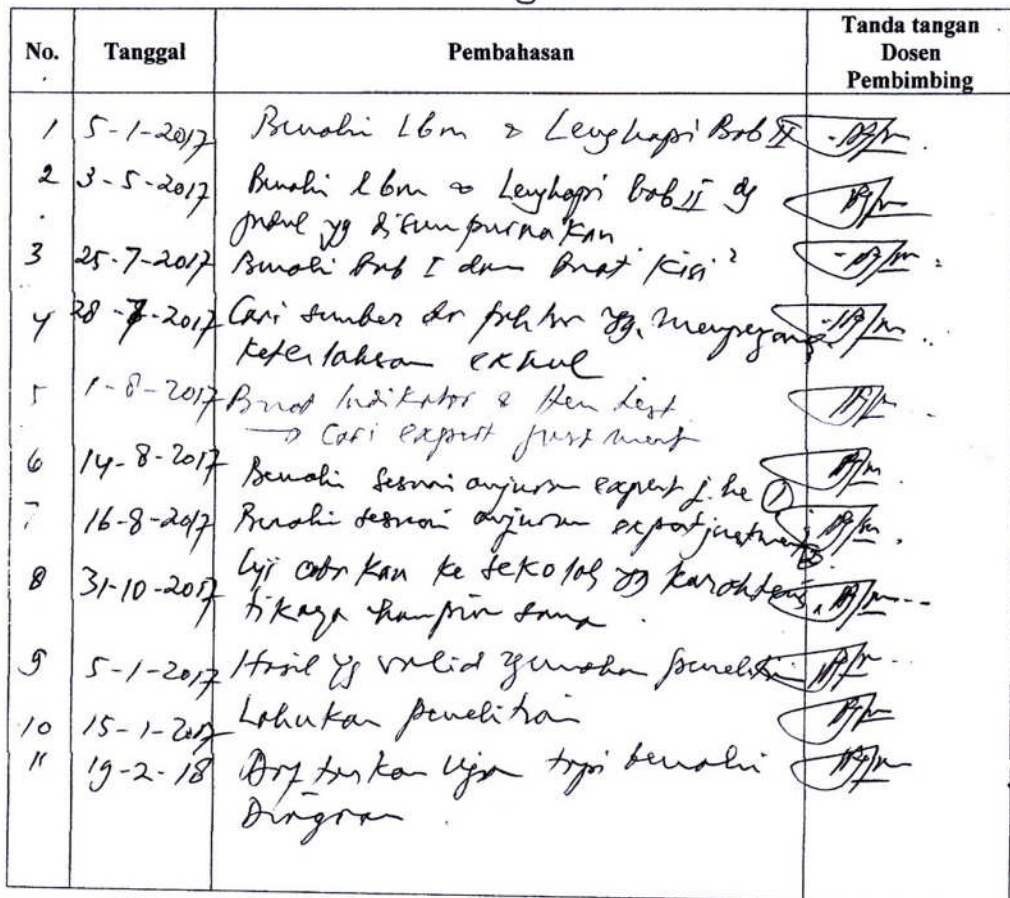 No. Tanggal Pembahasan Tanda tangan
Dosen
Pembimbing
1 5-1-2017 Benahi Lbm & Lengkapi Bab II
2 3-5-2017 Benahi Lbm & Lengkapi bab II dg
judul yg disempurnakan
3 25-7-2017 Benahi Bab I dan Buat Kisi²
4 28-7-2017 Cari sumber dr faktor yg
keterlaksan exkul
5 1-8-2017 Buat Indikator & Item test
→ Cari expert justment
6 14-8-2017 Benahi sesuai anjuran expert j. ke ①
7 16-8-2017 Benahi sesuai anjuran expert justment
8 31-10-2017 Uji coba kan ke sekolah yg karakteris
tiknya hampir sama.
9 5-1-2017 Hasil yg valid gunakan penelitian
10 15-1-2017 Lakukan penelitian
11 19-2-18 Daftarkan Ujian tapi benahi
Diagram